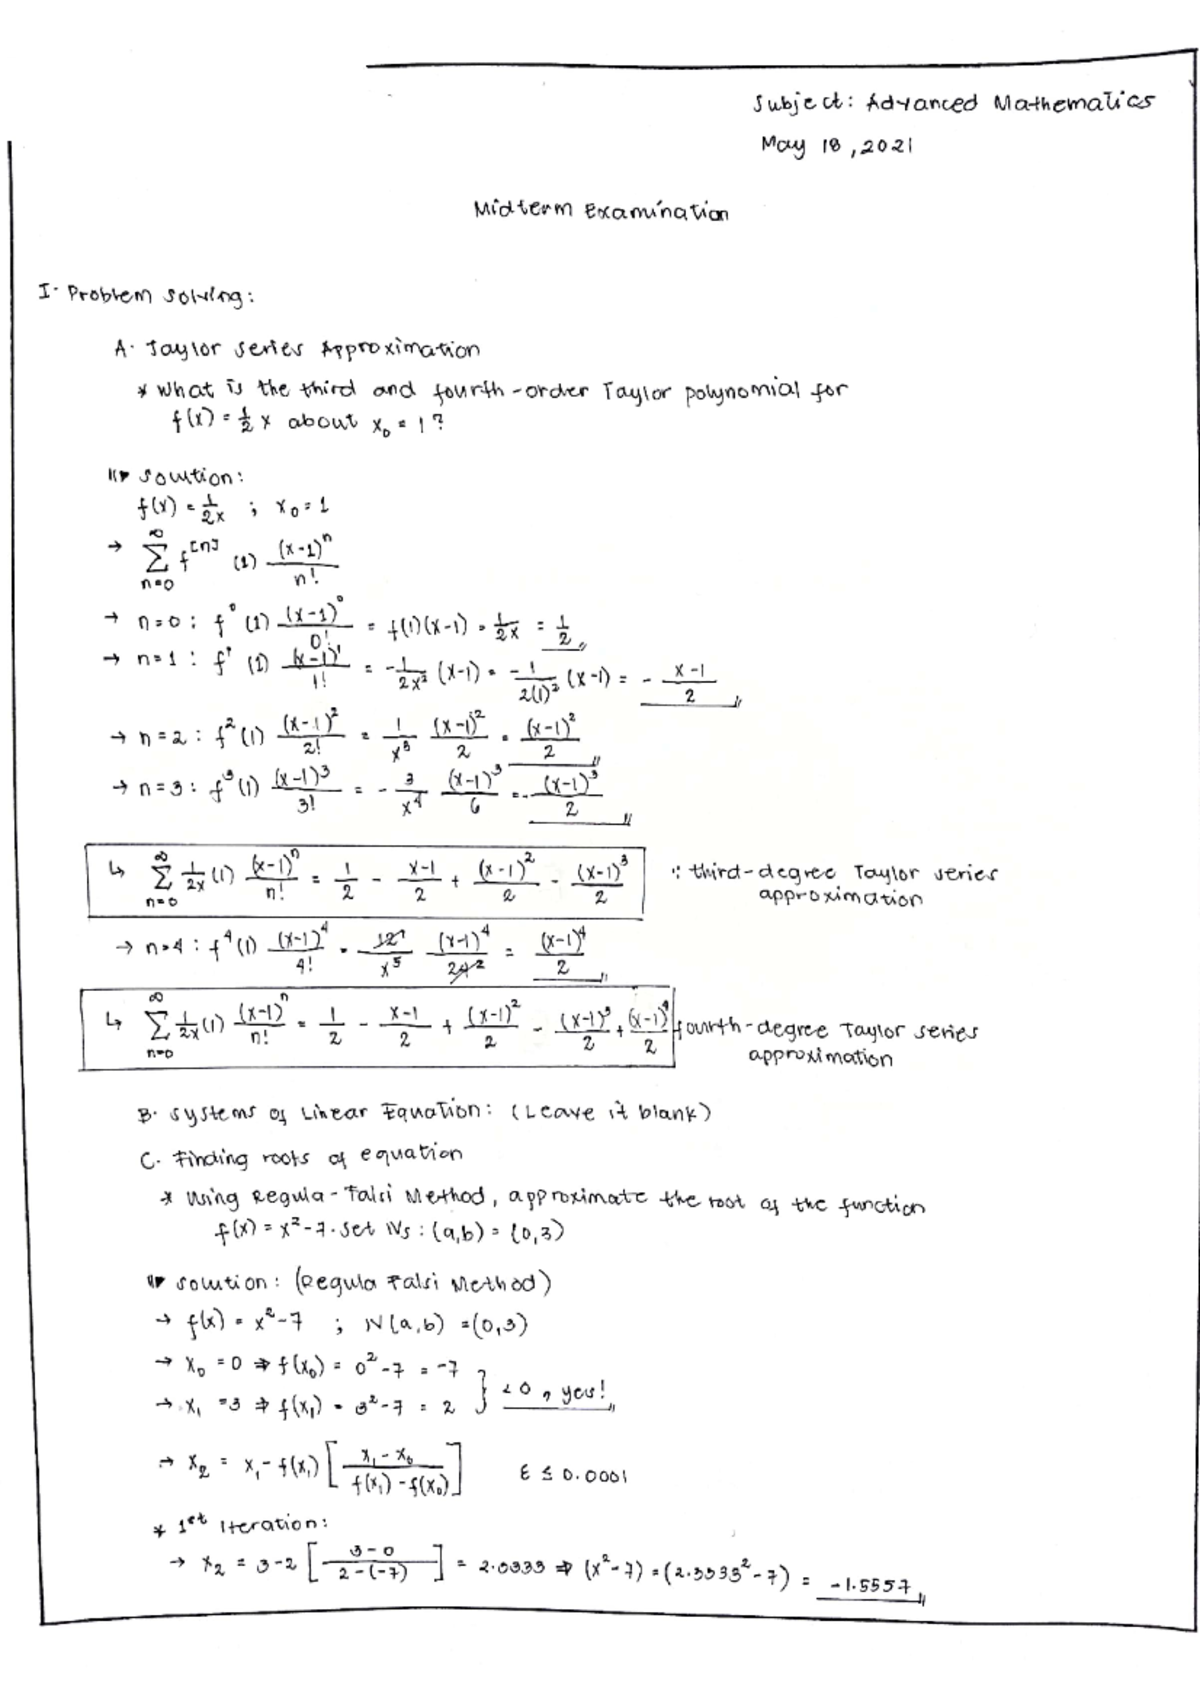 Subject: Advanced Mathematics
May 18, 2021
Midterm Examination
I. Problem Solving:
A. Taylor Series Approximation
* What is the third and fourth-order Taylor polynomial for
f(x) = 1/2 x about x₀ = 1?
Solution:
f(x) = 1/2x ; x₀ = 1
→ ∞ Σ n=0 f^[n] (1) (x-1)^n / n!
→ n=0 : f⁰ (1) (x-1)⁰ / 0! = f(1)(x-1) = 1/2x = 1/2
→ n=1 : f¹ (1) (x-1)¹ / 1! = -1/2x² (x-1) = -1/2(1)² (x-1) = - x-1 / 2
→ n=2 : f² (1) (x-1)² / 2! = 1/x³ (x-1)² / 2 = (x-1)² / 2
→ n=3 : f³ (1) (x-1)³ / 3! = - 3/x⁴ (x-1)³ / 6 = - (x-1)³ / 2
↳ ∞ Σ n=0 1/2x (1) (x-1)^n / n! = 1/2 - x-1 / 2 + (x-1)² / 2 - (x-1)³ / 2 ∵ third-degree Taylor series
approximation
→ n=4 : f⁴ (1) (x-1)⁴ / 4! = 12¹ / x⁵ (x-1)⁴ / 24 2 = (x-1)⁴ / 2
↳ ∞ Σ n=0 1/2x (1) (x-1)^n / n! = 1/2 - x-1 / 2 + (x-1)² / 2 - (x-1)³ / 2 + (x-1)⁴ / 2 fourth-degree Taylor series
approximation
B. Systems of Linear Equation: (Leave it blank)
C. Finding roots of equation
* Using Regula-Falsi Method, approximate the root of the function
f(x) = x² - 7. Set IVs : (a,b) = (0,3)
Solution: (Regula Falsi Method)
→ f(x) = x² - 7 ; IV (a,b) = (0,3)
→ x₀ = 0 ⇒ f(x₀) = 0² - 7 = -7
→ x₁ = 3 ⇒ f(x₁) = 3² - 7 = 2 } < 0, yes!
→ x₂ = x₁ - f(x₁) [ x₁ - x₀ / f(x₁) - f(x₀) ] ε ≤ 0.0001
* 1st Iteration:
→ x₂ = 3-2 [ 3-0 / 2-(-7) ] = 2.3333 ⇒ (x² - 7) = (2.3333² - 7) = -1.5557